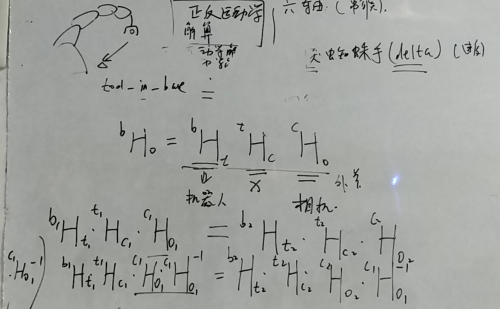 正反运动学
解算
六自由(串联)
蜘蛛手(delta)(并联)
tool_in_base =
ᵇH₀ = ᵇHₜ ᵗH_c ᶜH₀
机器人 X 相机 外参
b₁H_t₁ · t₁H_c₁ · c₁H_O₁ = b₂H_t₂ · t₂H_c₂ · c₂H_O₂
c₁H_O₁⁻¹) b₁H_t₁ t₁H_c₁ c₁H_O₁ c₁H_O₁⁻¹ = b₂H_t₂ · t₂H_c₂ c₂H_O₂ · c₁H_O₁⁻¹